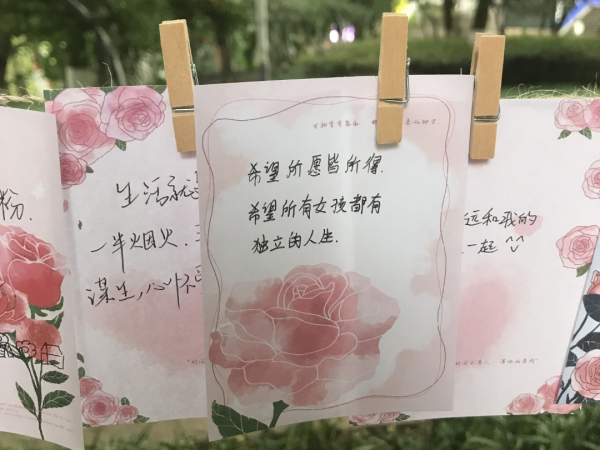 粉.
生活就
一半烟火.
谋生,
希望所愿皆所得.
希望所有女孩都有
独立的人生.
远和我的
一起 ^^